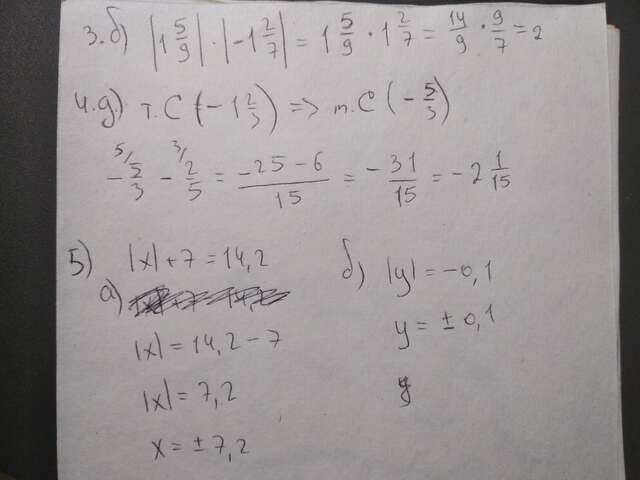 3.б) |1 5/9| · |-1 2/7| = 1 5/9 · 1 2/7 = 14/9 · 9/7 = 2
4.д) т. С (-1 2/3) => т. С (- 5/3)
- 5/3 - 2/5 = (-25-6)/15 = - 31/15 = -2 1/15
5) |x| + 7 = 14,2
а)
|x| = 14,2 - 7
|x| = 7,2
x = ± 7,2
б) |y| = -0,1
y = ± 0,1
y